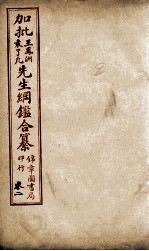 加批王鳳洲袁了凡先生綱鑑合纂
錦章圖書局印行
卷二